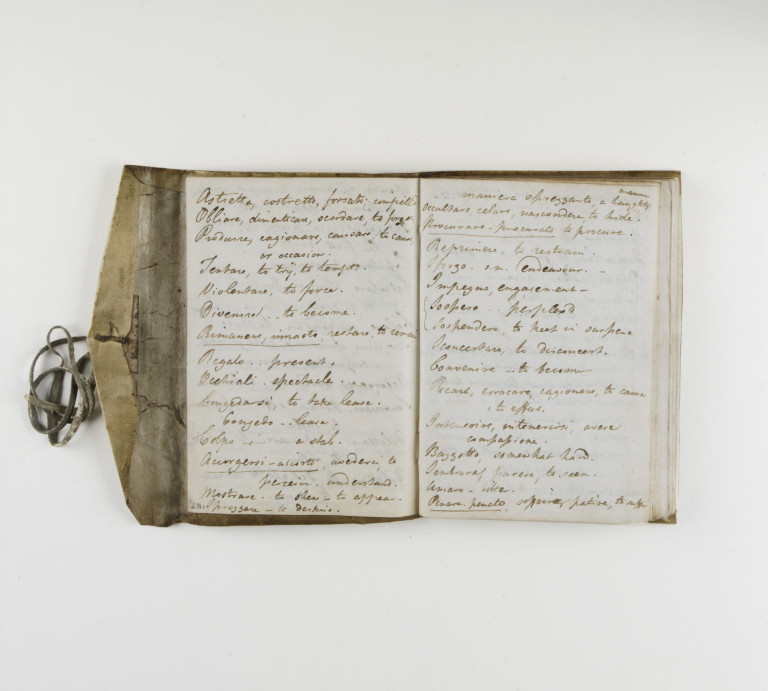 Astretto, costretto, forsato, compell
Obliare, dimenticare, scordare, to forget
Produrre, cagionare, causare, to cause
or occasion.
Tentare, to try, to tempt.
Violentare, to force.
Divenire.. to become.
Rimanere, rimasto, restare, to remain
Regalo.. present.
Occhiali.. spectacle.
Congedarsi.. to take leave.
Congedo.. leave.
Colpo -. a stab.
Accorgersi - accorto, avedersi to
perceive, understand.
Mostrare.. to shew - to appear.
sprezzare - to despise.
manner
- maniera sprezzante, a haughty
Occultare, celare, nascondere, to hide.
Procurare - procurato to procure.
Reprimere. to restrain.
Sforzo. s.m. endeavour.
Impegno, engagement -
Sospeso.. perplex'd
Sospendere, to keep in suspence
Sconcertare, to disconcert.
Convenire - to become
Recare, cagionare, to cause
, to effect.
Intenerire, intenerirsi, avere
compassione.
Bazzotto, somewhat hard.
Sembrare, parere, to seem.
Penare - penato, soffrire, patire, to suffer